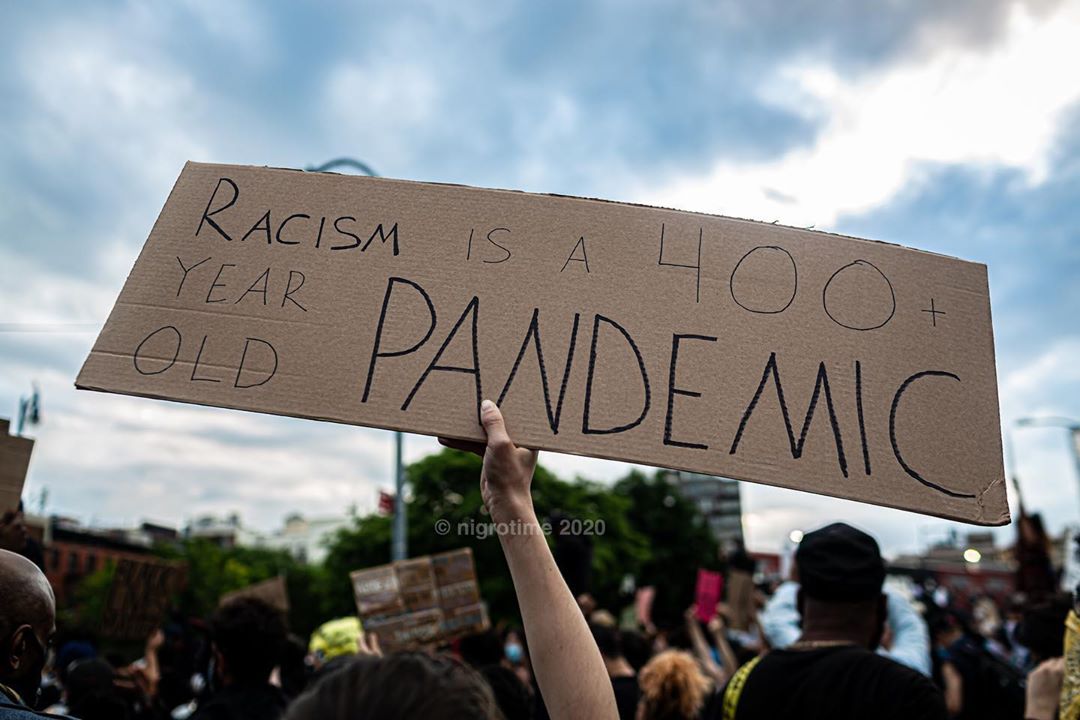 RACISM IS A 400+
YEAR
OLD PANDEMIC
© nigrotime 2020